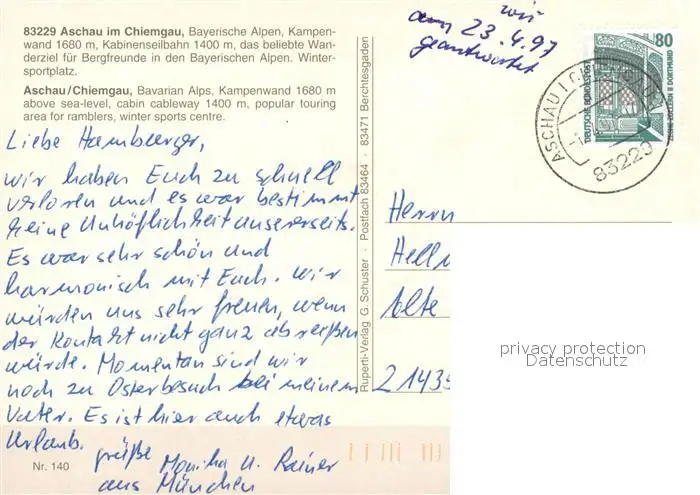 83229 Aschau im Chiemgau, Bayerische Alpen, Kampen-
wand 1680 m, Kabinenseilbahn 1400 m, das beliebte Wan-
derziel für Bergfreunde in den Bayerischen Alpen. Winter-
sportplatz.
Aschau/Chiemgau, Bavarian Alps, Kampenwand 1680 m
above sea-level, cabin cableway 1400 m, popular touring
area for ramblers, winter sports centre.
Liebe Hamburger,
wir haben Euch zu schnell
verloren und es war bestimmt
keine Unhöflichkeit unsererseits.
Es war sehr schön und
harmonisch mit Euch. Wir
würden uns sehr freuen, wenn
der Kontakt nicht ganz abreißen
würde. Momentan sind wir
noch zu Osterbesuch bei meinem
Vater. Es ist hier auch etwas
Urlaub.
Grüße Monika u. Rainer
aus München
Nr. 140
Ruperti-Verlag G. Schuster · Postfach 83464 · 83471 Berchtesgaden
wir
am 23.4.97
geantwortet
80
DEUTSCHE BUNDESPOST
ZECHE ZOLLERN II DORTMUND
ASCHAU I CHIEMGAU
83229
Herrn
Hellm
Alte
21435
privacy protection
Datenschutz